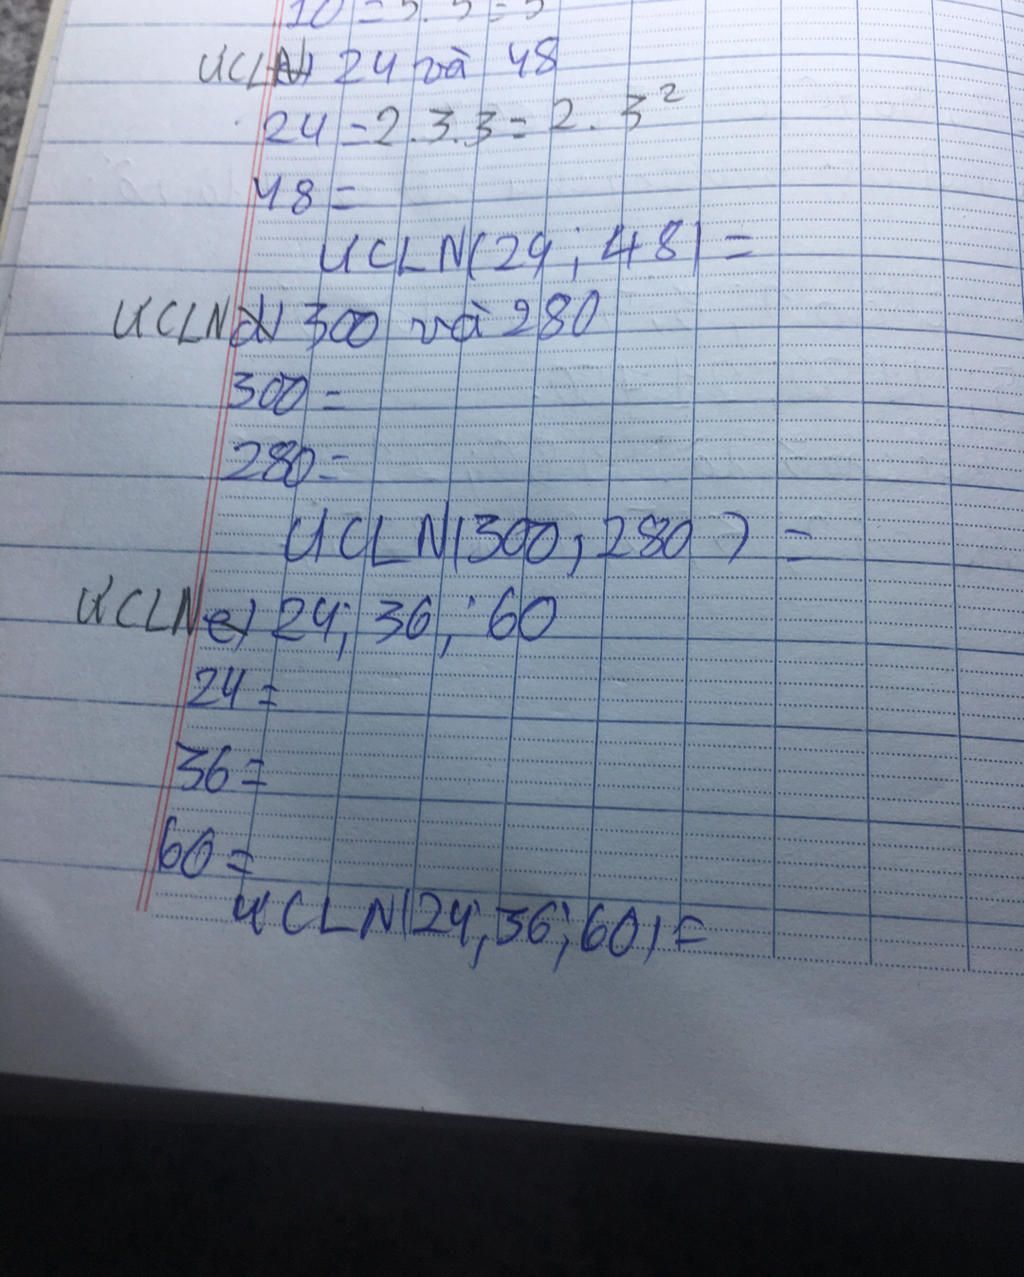 10 = 5.5 = 5
ƯCLN 24 và 48
24 = 2.3.3 = 2.3²
48 =
ƯCLN(24; 48) =
ƯCLN d) 300 và 280
300 =
280 =
ƯCLN(300; 280) =
ƯCLN e) 24; 36; 60
24 =
36 =
60 =
ƯCLN(24; 36; 60) =